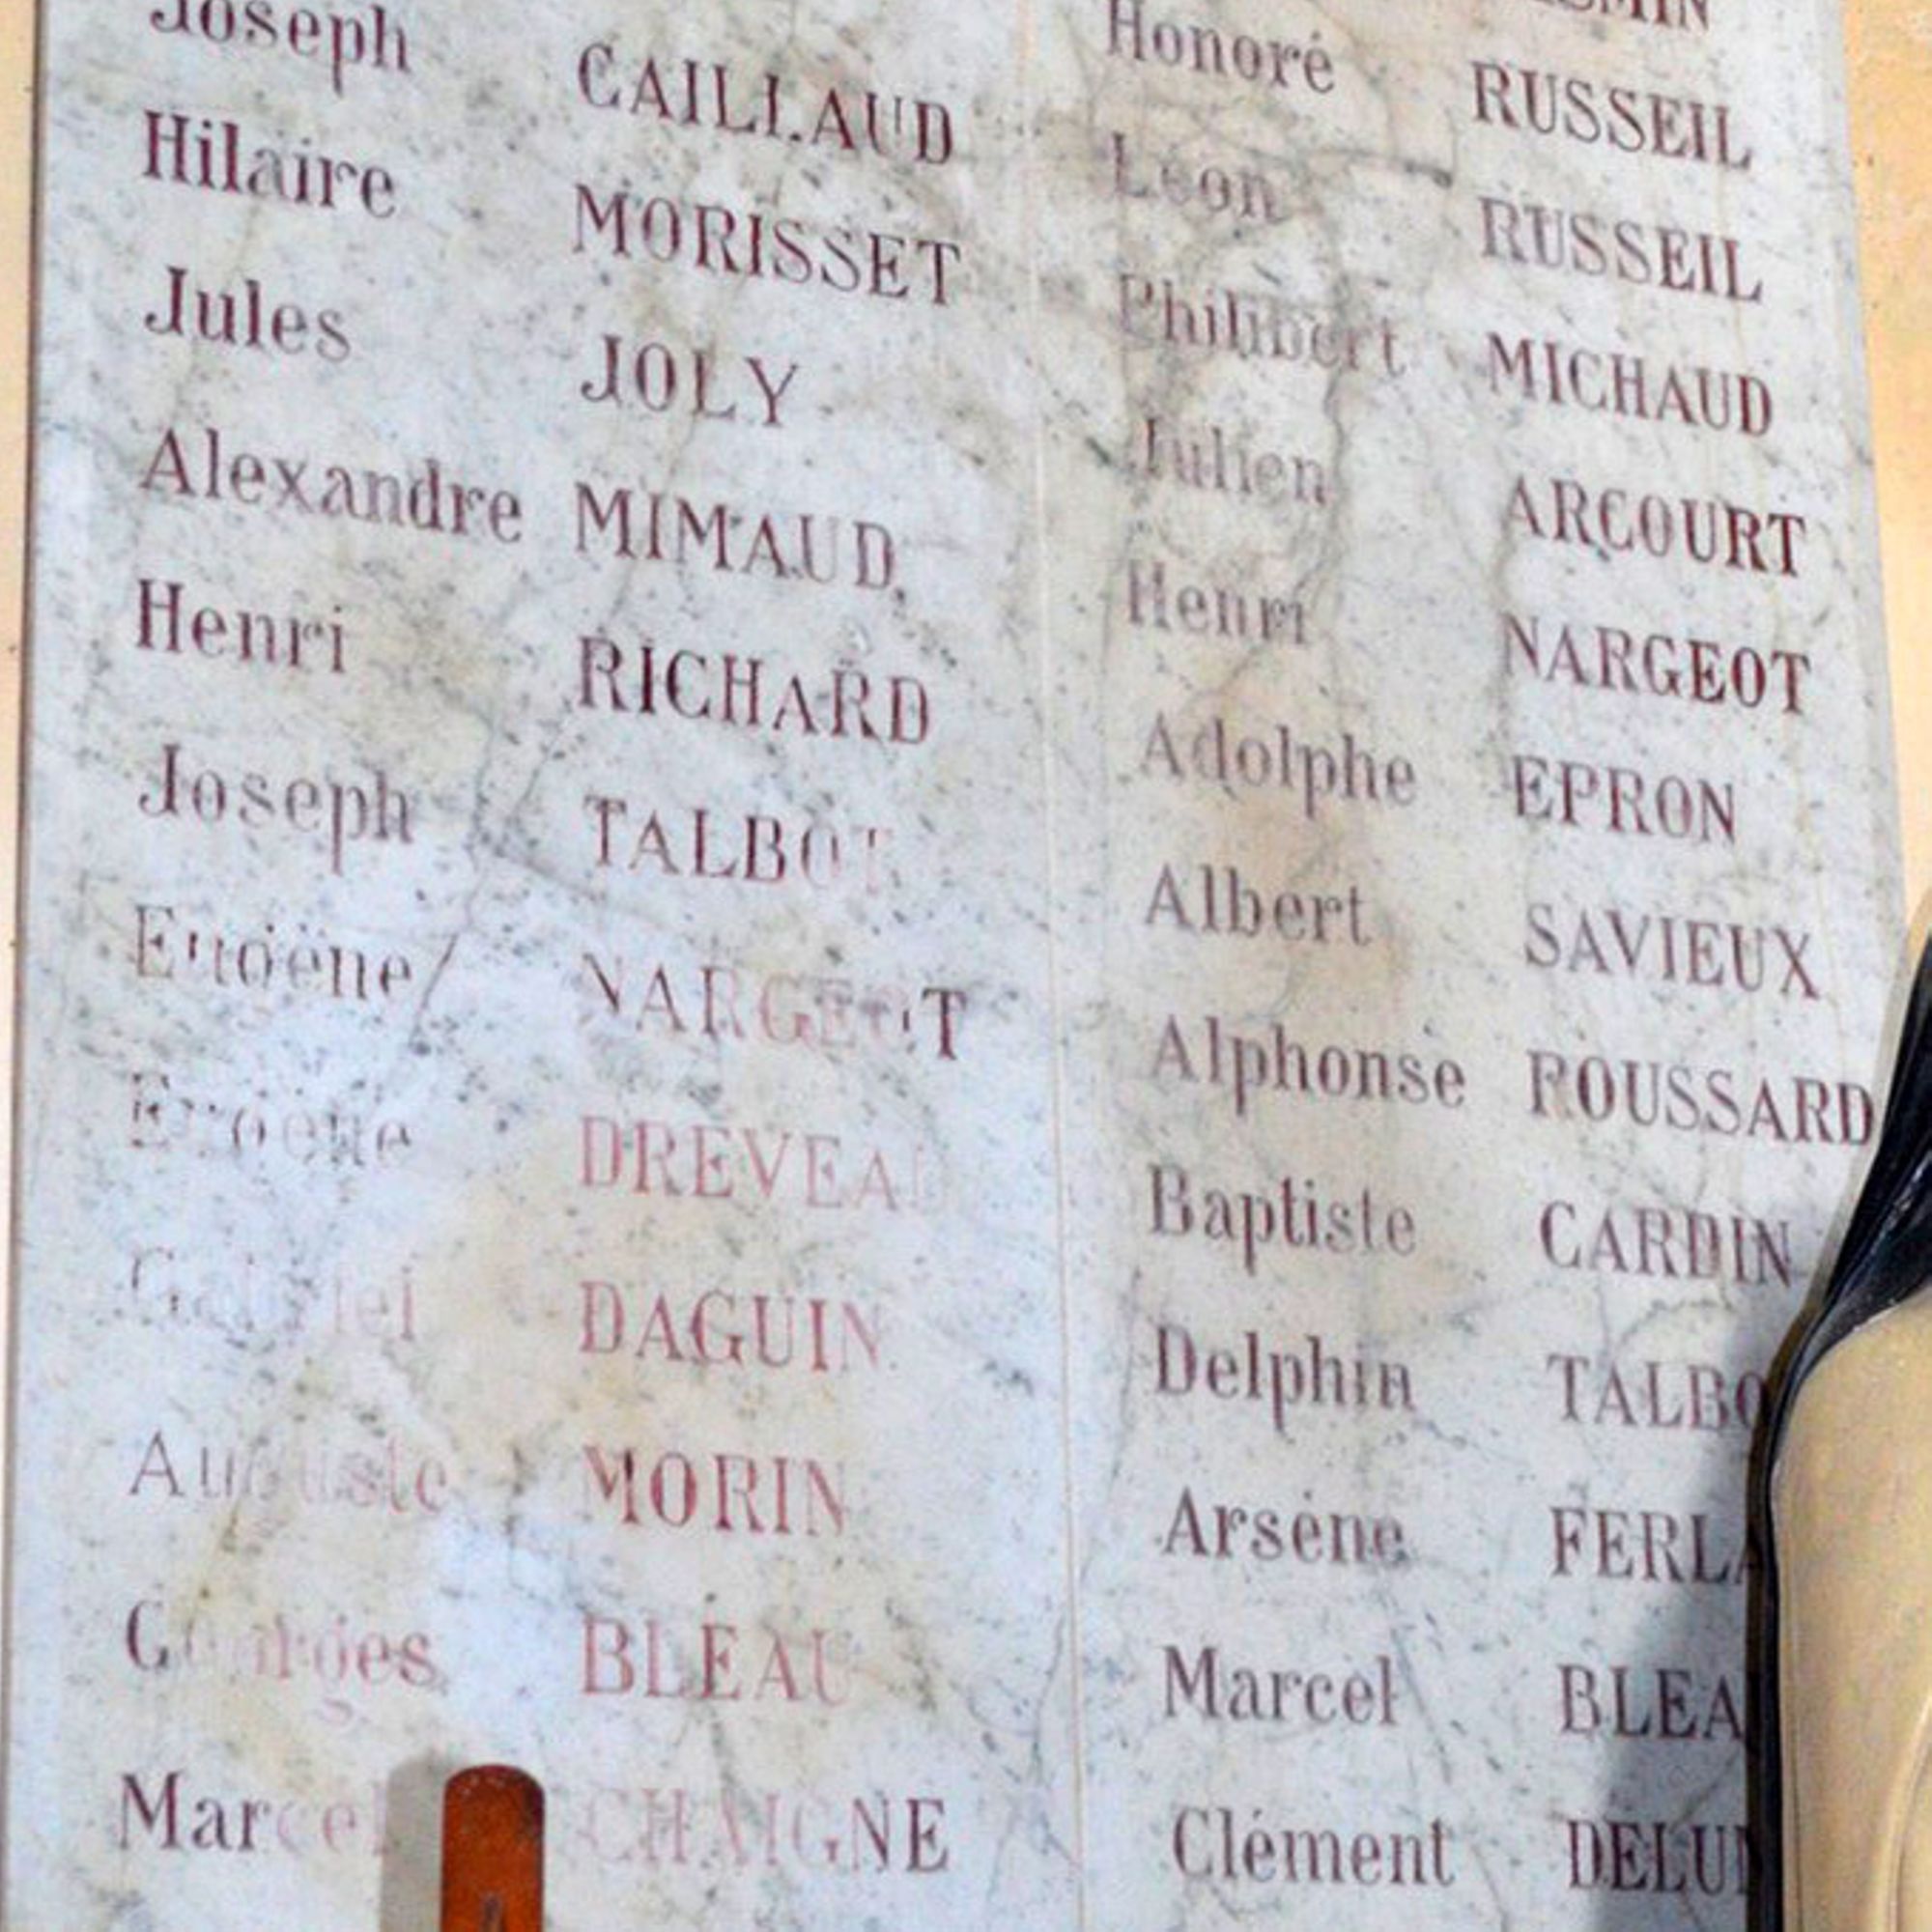 Joseph CAILLAUD
Hilaire MORISSET
Jules JOLY
Alexandre MIMAUD
Henri RICHARD
Joseph TALBOT
Eugène NARGEOT
Eugène DREVEAU
Gabriel DAGUIN
Auguste MORIN
Georges BLEAU
Marcel CHAIGNE
Honoré RUSSEIL
Léon RUSSEIL
Philibert MICHAUD
Julien ARCOURT
Henri NARGEOT
Adolphe EPRON
Albert SAVIEUX
Alphonse ROUSSARD
Baptiste CARDIN
Delphin
Arsène
Marcel
Clément